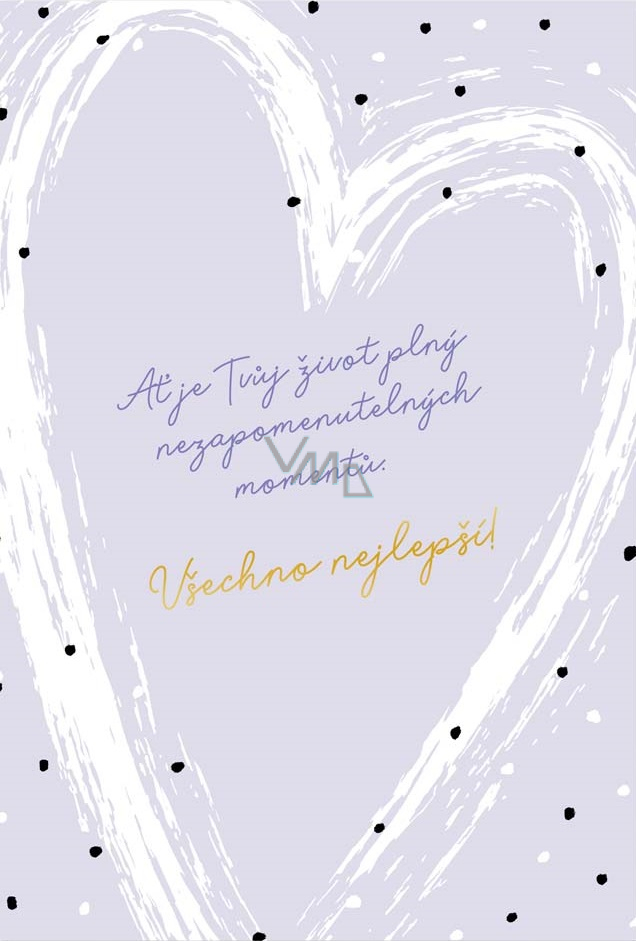 Ať je Tvůj život plný
nezapomenutelných
momentů.
VMD
Všechno nejlepší!